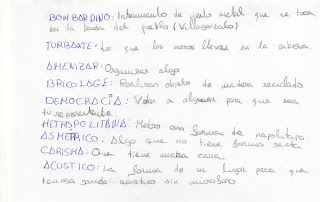 BOMBARDINO: Instrumento de viento metal que se toca
en la banda del pueblo (Villagonzalo)
TURBANTE: Los que los moros llevan en la cabeza
AMENIZAR: Organizar algo
BRICOLAGE: Realizar objeto de madera reciclado
DEMOCRACIA: Votar a alguien para que sea
tu representante
METROPOLITANA: Metro con forma de napolitana
ASMETRICO: Algo que no tiene forma recta
CARISMA: Que tiene mucha cara.
ACUSTICO: La forma de un lugar para que
tenga sonido acustico sin microfono